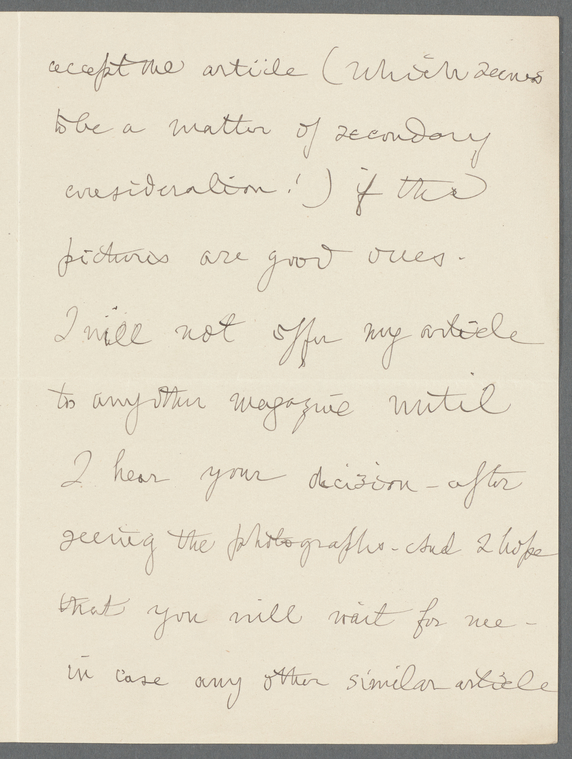 accept the article (which seems
to be a matter of secondary
consideration!) if the
pictures are good ones.
I will not offer my article
to any other magazine until
I hear your decision - after
seeing the photographs - And I hope
that you will wait for me -
in case any other similar article